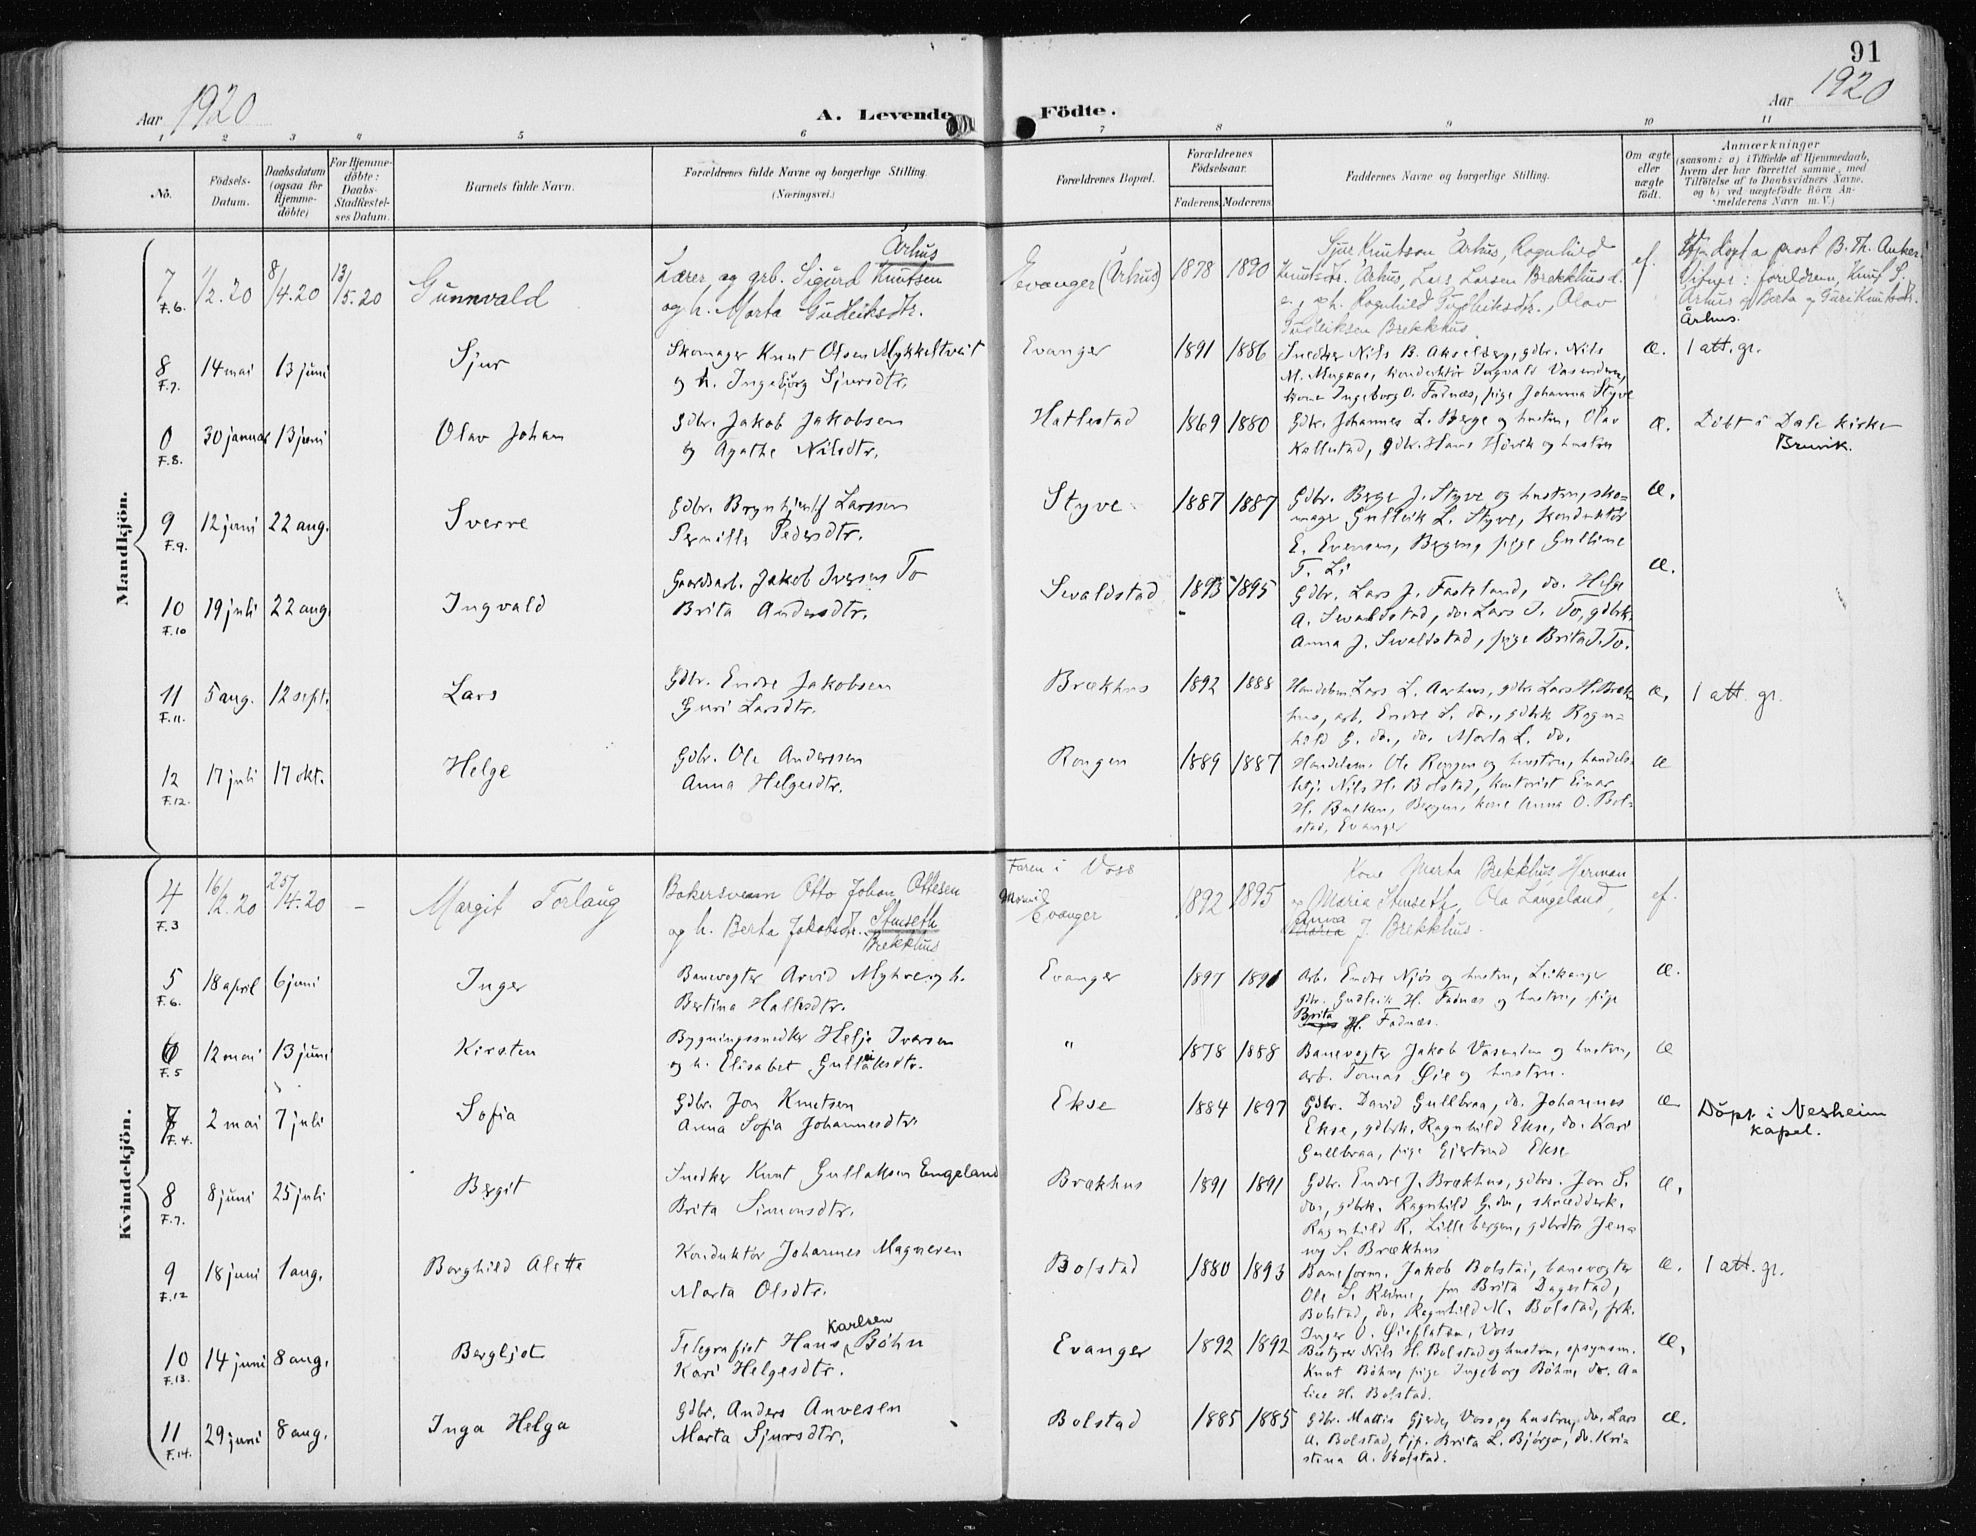 91
Aar 1920
A. Levende Födte.
Aar 1920
1 2 3 4 5 6 7 8 9 10 11
No.
Födsels-Datum.
Daabsdatum (ogsaa for Hjemme-döbte)
For Hjemme-döbte: Daabs-Stadfæstel-ses Datum.
Barnets fulde Navn.
Forældrenes fulde Navne og borgerlige Stilling.
(Næringsvei.)
Forældrenes Bopæl.
Forældrenes Födselsaar.
Faderens. Moderens.
Faddernes Navne og borgerlige Stilling.
Om ægte eller uægte födt.
Anmærkninger
(saasom: a) i Tilfælde af Hjemmedaab,
hvem der har forrettet samme, med
Tilföielse af to Daabsvidners Navne,
og b) ved uægtefödte Börn An-
melderens Navn m. V.)
Mandkjön.
7 F.6. 1/2.20 8/4.20 13/5.20 Gunnvald
Århus
Lærer og grb. Sigurd Knutsen
og h. Marta Gudleiksdtr.
Evanger (Århus) 1878 1890
Sjur Knutson Århus, Ragnhild
Knutsdtr. Århus, Lars Larsen Brekkhus d.
e., og h. Ragnhild Gudleiksdtr., Olav
Gudleiksen Brekkhus
ef.
prost B. Th. Anker.
foreldren, Knut S.
Århus og Berta og Guri Knutsdtr.
Århus.
8 F.7. 14 mai 13 juni Sjur
Skomager Knut Olsen Mykkeltveit
og h. Ingeborg Sjursdtr.
Evanger 1891 1886
Snedker Nils B. Akselberg, gdbr. Nils
M. Mugaas, konduktör Ingvald Vasenden,
kone Ingeborg O. Fadnæs, pige Johanna Styve
æ. 1 att. gr.
0 F.8. 30 januar 13 juni Olav Johan
Gdbr. Jakob Jakobsen
og Agathe Nilsdtr.
Hatlestad 1869 1880
Gdbr. Johannes L. Berge og hustru, Olav
Kallestad, gdbr. Hans Hörvik og hustru
æ. Döbt i Dale kirke
Bruvik.
9 F.9. 12 juni 22 aug. Sverre
Gdbr. Brynhjulf Larssen
Pernille Pedersdtr.
Styve 1887 1887
Gdbr. Berge J. Styve og hustru, sko-
mager Gulleik L. Styve, konduktör
E. Evensen, Bergen, pige Gulline
T. Li
æ.
10 F.10 19 juli 22 aug. Ingvald
Gaardsarb. Jakob Iversen To
Brita Andersdtr.
Svaldstad 1893 1895
Gdbr. Lars J. Fasteland, do. Helge
A. Svaldstad, do. Lars I. To, gdbrk.
Anna J. Svaldstad, pige Brita I. To.
æ.
11 F.11. 5 aug. 12 sept. Lars
Gdbr. Endre Jakobsen
Guri Larsdtr.
Brækhus 1892 1888
Handelsm. Lars L. Aarhus, gdbr. Lars H. Bræk-
hus, arb. Endre S. do., gdbrk. Ragn-
hild G. do., do. Marta L. do.
æ. 1 att. gr.
12 F.12. 17 juli 17 okt. Helge
Gdbr. Ole Anderssen
Anna Helgesdtr.
Rongen 1889 1887
Handelsm. Ole Rongen og hustru, handels-
betj. Nils H. Bolstad, kontorist Einar
H. Bulken, Bergen, kone Anna O. Bol-
stad, Evanger
æ
Kvindekjön.
4 F.3 16/2.20 25/4.20 – Margit Torlaug
Bakersvenn Otto Johan Ottesen
og h. Berta Jakobsdtr. Stenseth
Brekkhus
Faren i Voss
Evanger 1892 1895
Kone Marta Brekkhus, Herman
og Maria Stenseth, Ola Langeland,
Anna
J. Brekkhus.
ef.
5 F.6. 18 april 6 juni Inger
Banevogter Arvid Myhre og h.
Bertina Hallesdtr.
Evanger 1897 1891
Arb. Endre Njös og hustru, Leikanger
gdbr. Gudleik H. Fadnæs og hustru, pige
Brita
H. Fadnæs.
æ.
6 F.5 12 mai 13 juni Kirsten
Bygningssnedker Helje Iversen
og h. Elisabet Gullaksdtr.
" 1878 1888
Banevogter Jakob Vasenden og hustru,
arb. Tomas Øie og hustru.
æ
7 F.4. 2 mai 7 juli Sofia
Gdbr. Jon Knutsen
Anna Sofia Johannesdtr.
Ekse 1884 1897
Gdbr. David Gullbraa, do. Johannes
Ekse, gdbrk. Ragnhild Ekse, do. Kari
Gullbraa, pige Gjertrud Ekse
æ Döpt i Nesheim
kapel.
8 F.7. 8 juni 25 juli Bergit
Snedker Knut Gullaksen Engeland
Brita Simonsdtr.
Brækhus 1891 1891
Gdbr. Endre J. Brækhus, gdbrs. Jon S.
do., gdbrk. Ragnhild G. do., skrædderk.
Ragnhild R. Lillebergen, gdbrdtr. Jen-
ny S. Brækhus
æ.
9 F.12 18 juni 1 aug. Borghild Alette
Konduktör Johannes Magnesen
Marta Olsdtr.
Bolstad 1880 1893
Baneform. Jakob Bolstad, banevogter
Ole S. Reime, fru Brita Dagestad,
Bolstad, do. Ragnhild M. Bolstad, frk.
Inger O. Øieflaten, Voss
æ. 1 att. gr.
10 F.13. 14 juni 8 aug. Bergljot
Karlsen
Telegrafist Hans Böhn
Kari Helgesdtr.
Evanger 1892 1892
Bestyrer Nils H. Bolstad og hustru, opsynsm.
Knut Böhn, pige Ingeborg Böhn, do. Aa-
lice H. Bolstad.
æ.
11 F.14. 29 juni 8 aug. Inga Helga
Gdbr. Anders Anvesen
Marta Sjursdtr.
Bolstad 1885 1885
Gdbr. Mattis Gjerde, Voss, og hustru, do. Lars
A. Bolstad, tjp. Brita L. Björgo, do. Kris-
tina A. Bolstad.
æ.